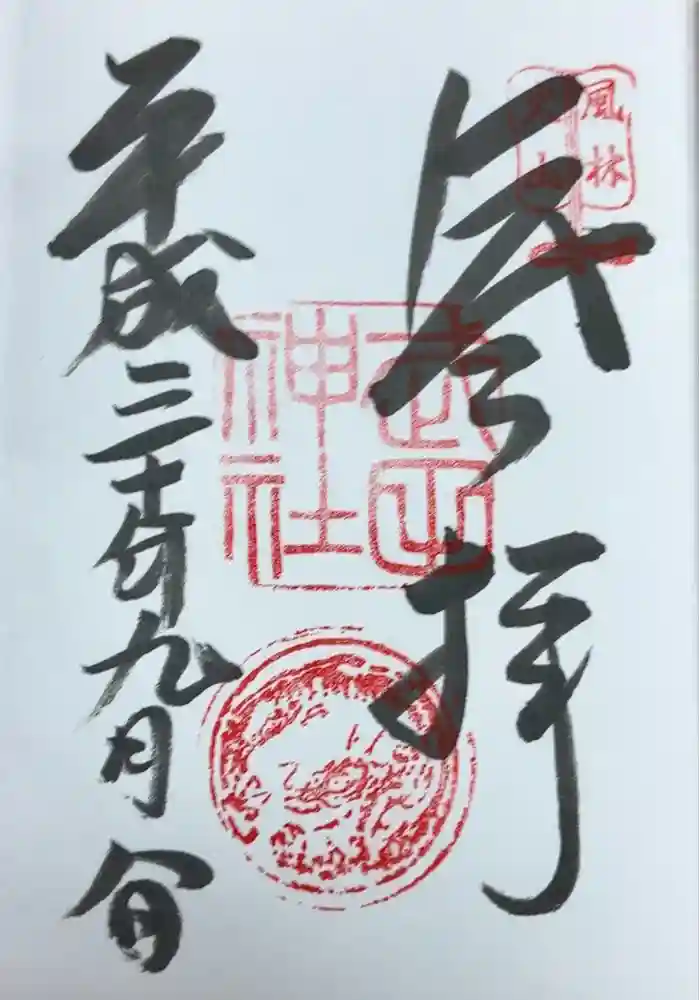 風林
火山
奉拝
武田
神社
平成三十年九月八日